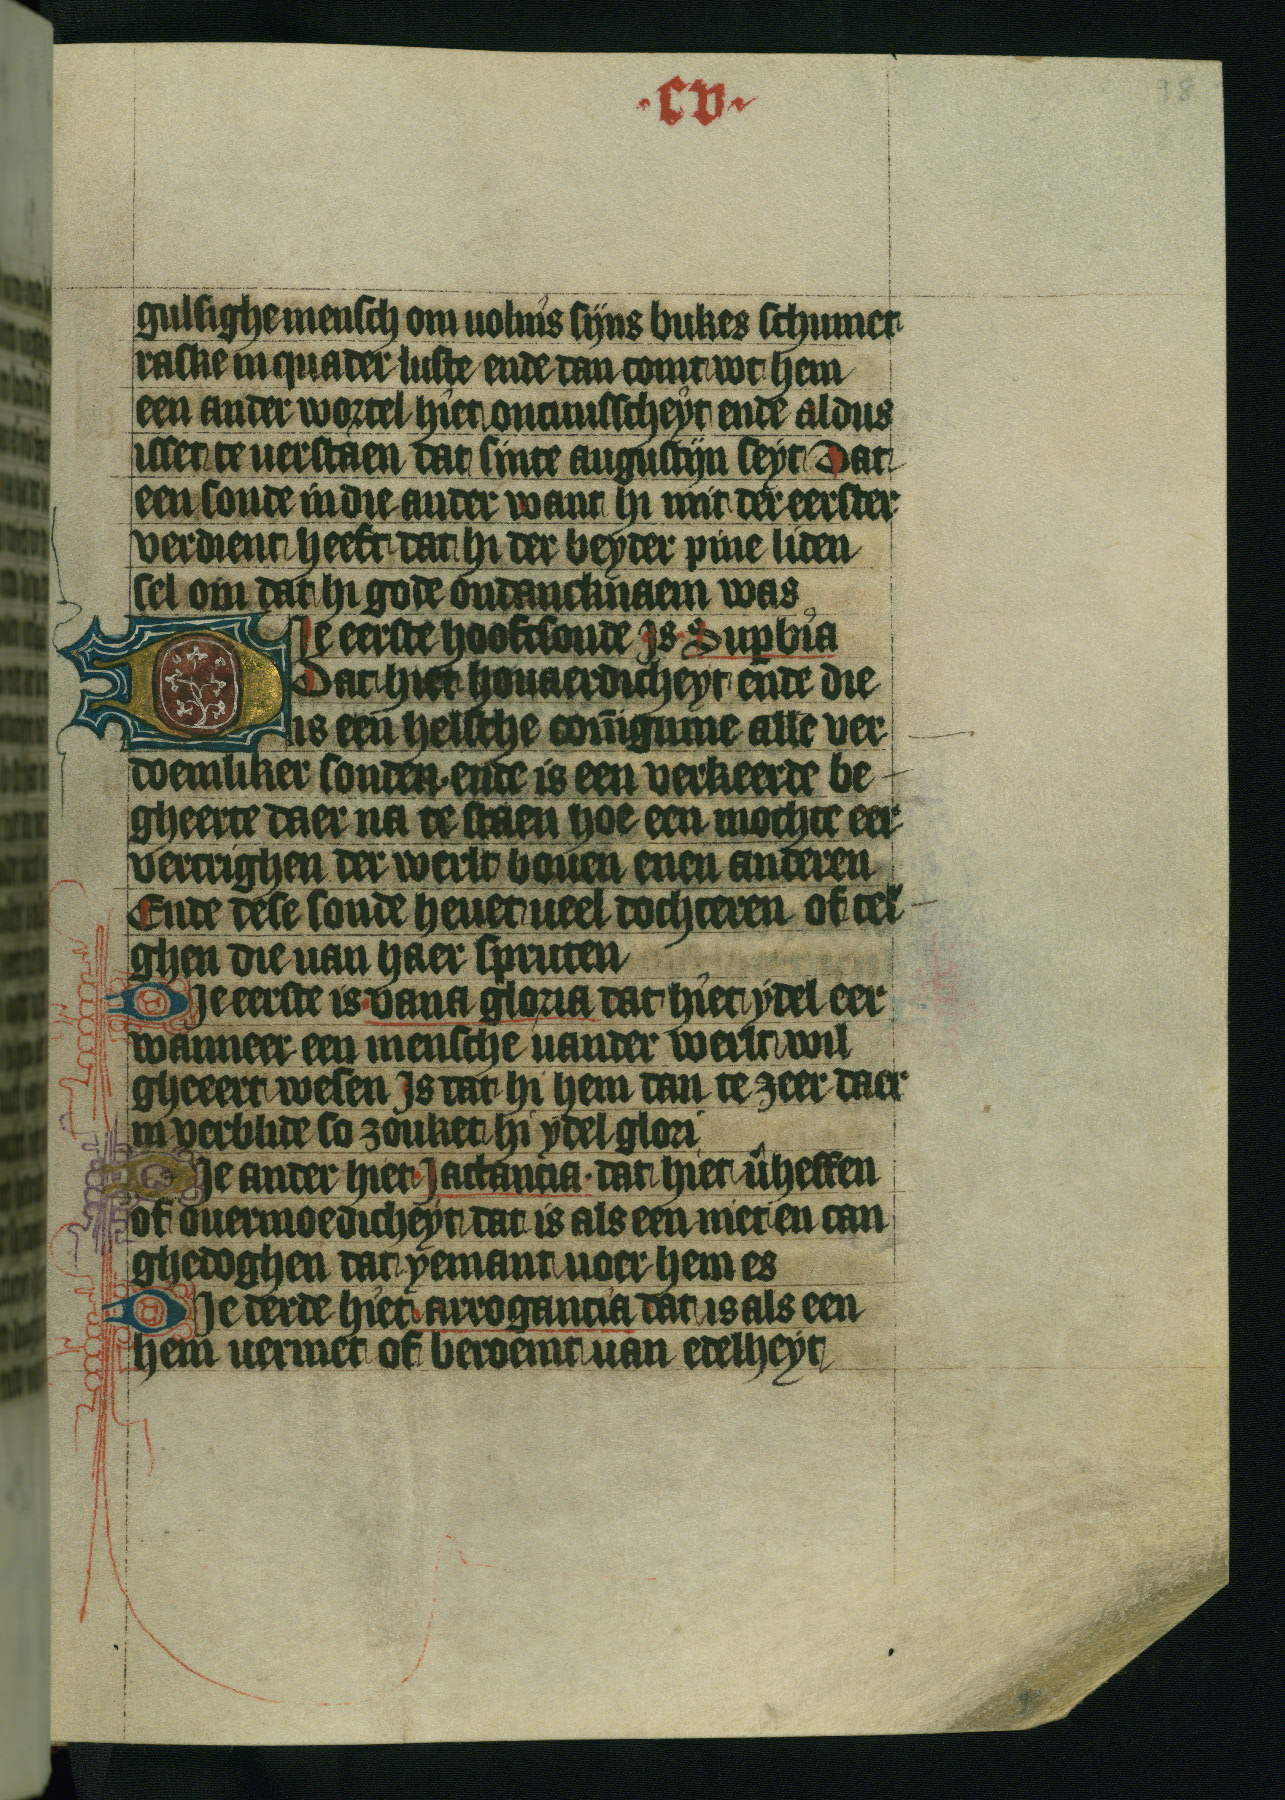 ·cv·
98
gulsighe mensch om uolnis sijns bukes schumet
raske in quader luste ende dan comt wt hem
een ander wortel hiet oncuusscheyt ende aldus
isset te uerstaen dat sinte augustijn seyt Dat
een sonde in die ander want hi mit der eerster
verdient heeft dat hi der beyder pine liden
sel om dat hi gode ondancknaem was
Die eerste hooftsonde Js Supbia
Dat hiet houaerdicheyt ende die
is een helsche coniginne alle ver
doemliker sonden ende is een verkeerde be
gheerte daer na te staen hoe een mochte eer
vercrighen der werlt bouen enen anderen
Ende dese sonde heuet ueel dochteren of tel
ghen die uan haer spruten
Die eerste is vana gloria dat hiet ydel eer
wanneer een mensche uander werlt wil
gheeert wesen Js dat hi hem dan te zeer daer
in verblide so zouket hi ydel glori
Die ander hiet Jactancia dat hiet uheffen
of ouermoedicheyt dat is als een niet en can
ghedoghen dat yemant uoer hem es
Die derde hiet arrogancia dat is als een
hem uermet of beroemt uan edelheyt